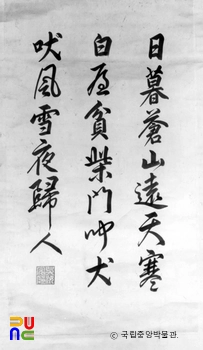 日暮蒼山遠天寒
白屋貧柴門聞犬
吠風雪夜歸人
© 국립중앙박물관.